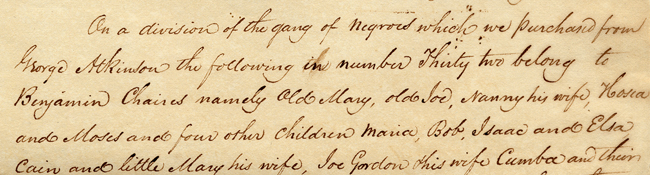 On a division of the gang of Negroes which we purchased from
George Atkinson the following in number Thirty two belong to
Benjamin Chaires namely Old Mary, old Joe, Nanny his wife, Hosea
and Moses and four other children Maria, Bob Isaac and Elsa
Cain and little Mary his wife, Joe Gordon & his wife Cumba and their